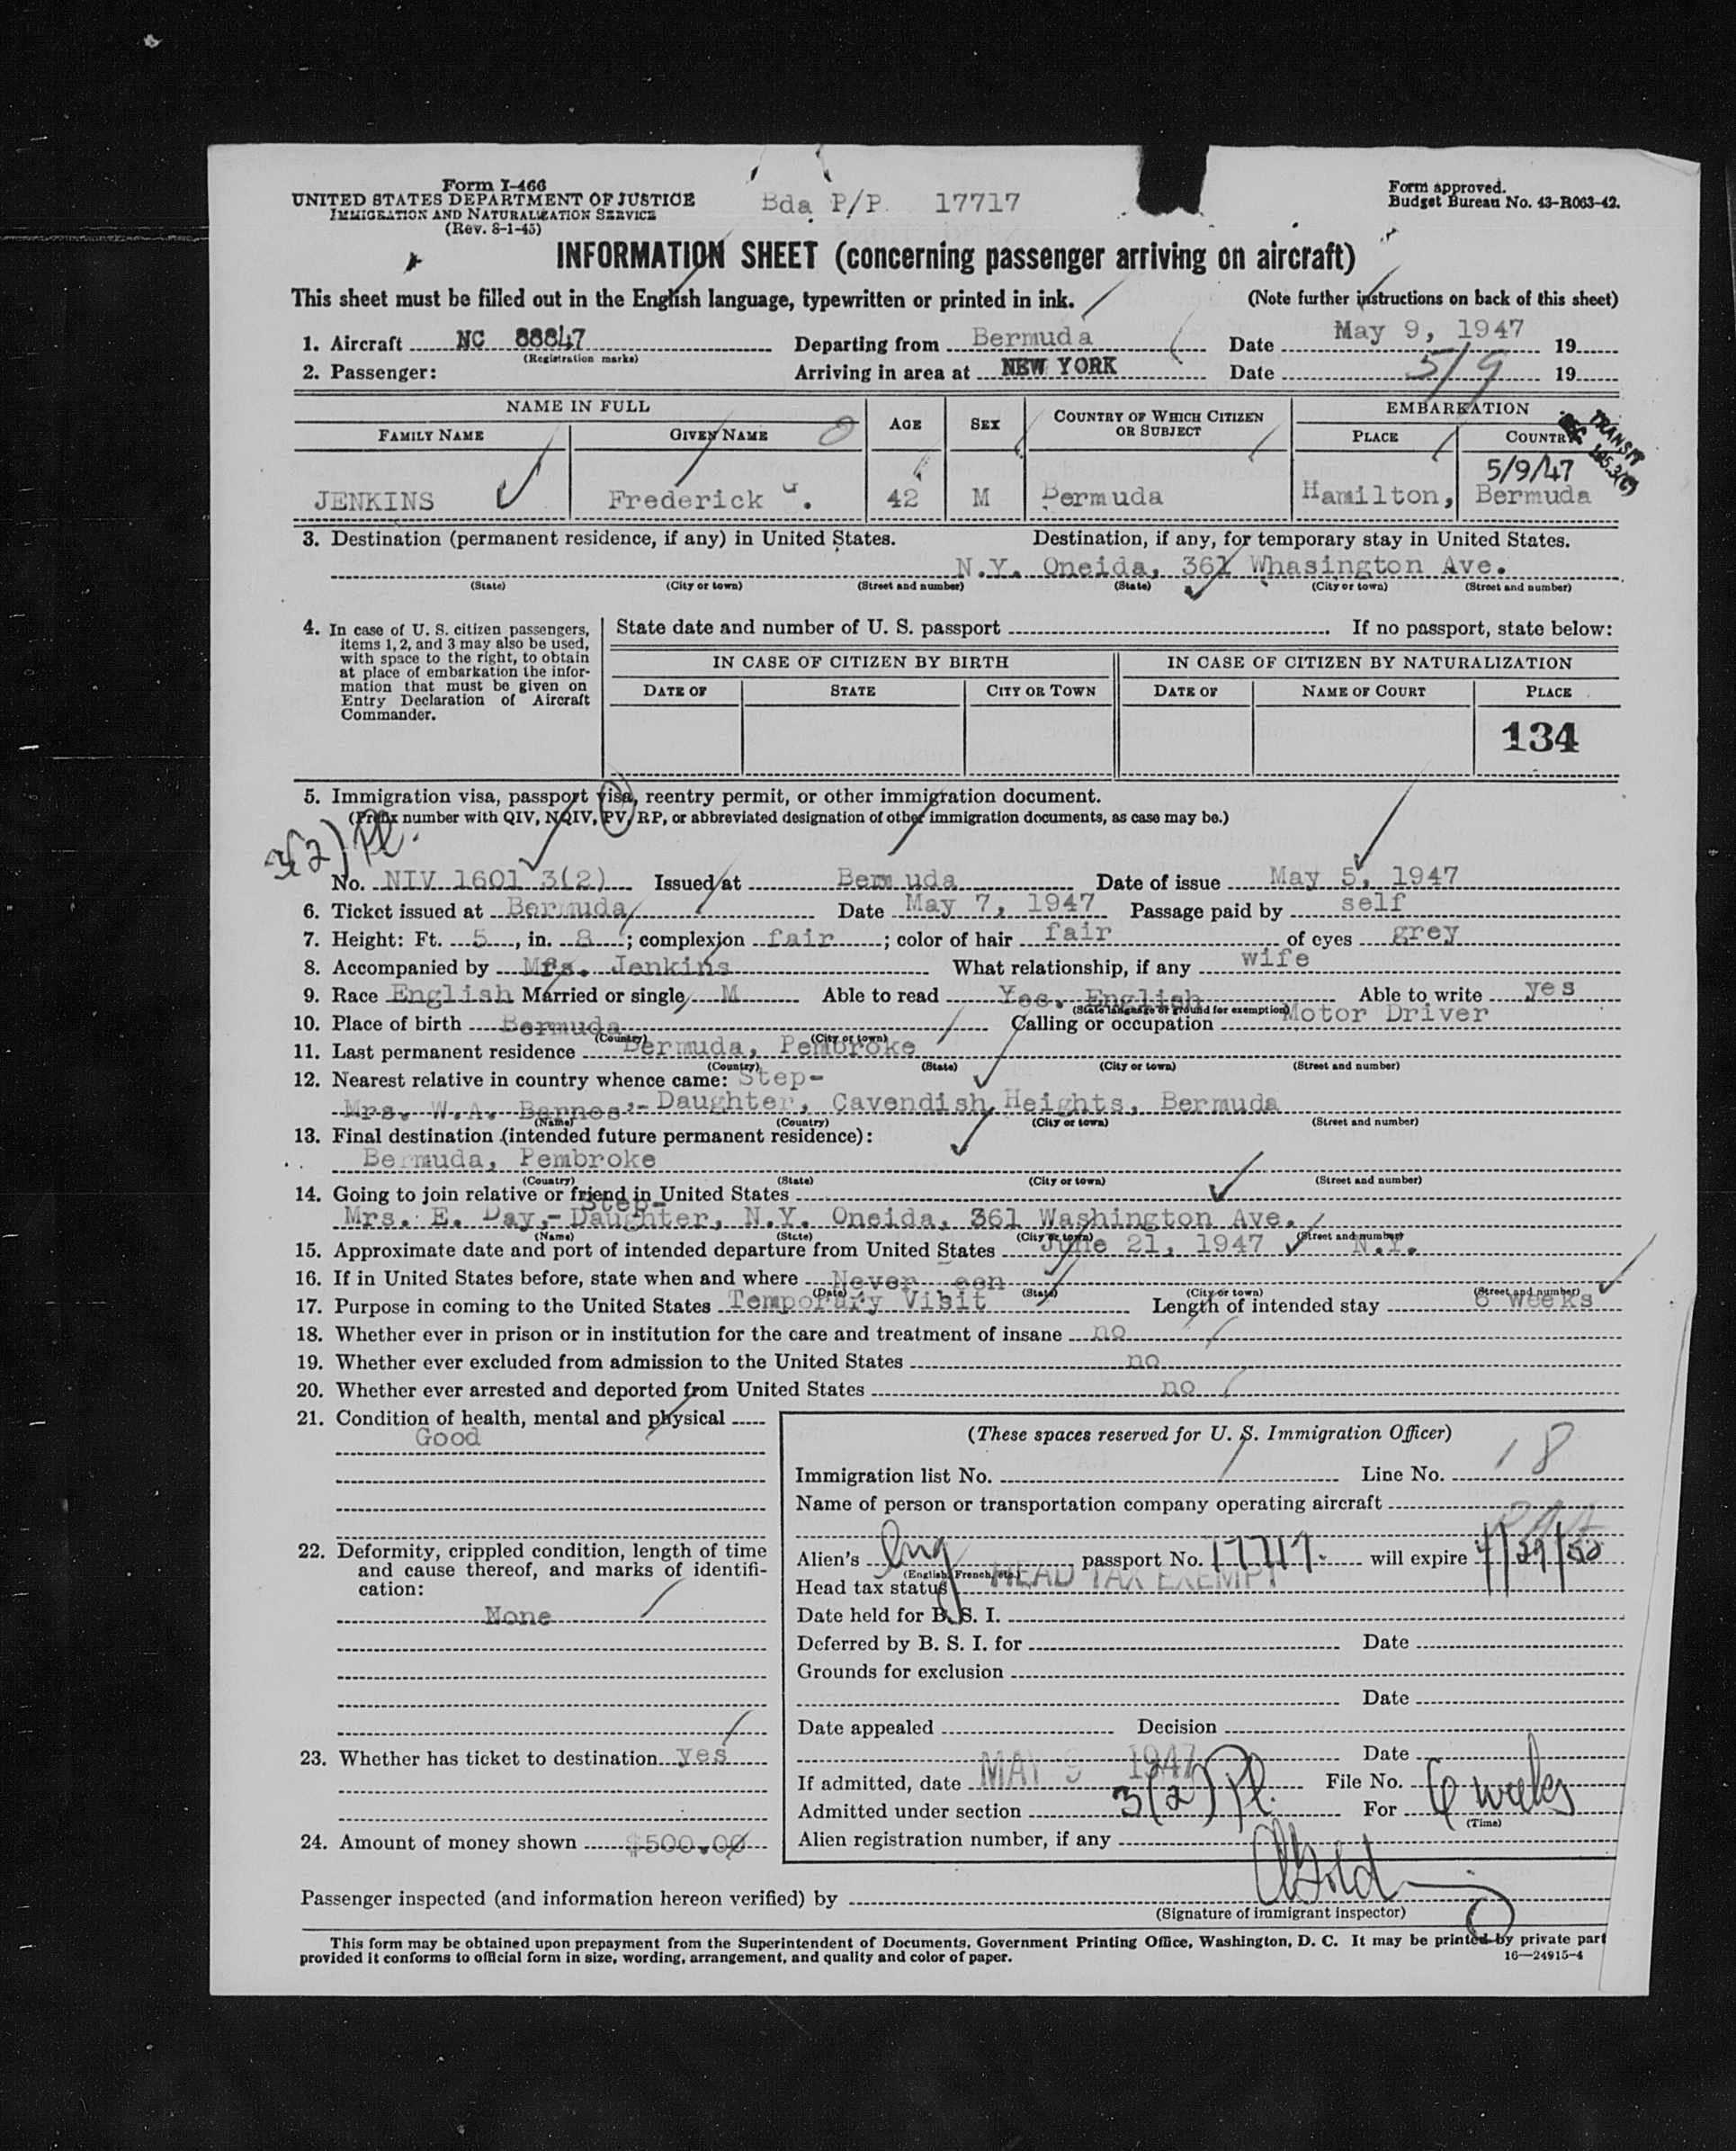 Form I-466
UNITED STATES DEPARTMENT OF JUSTICE
IMMIGRATION AND NATURALIZATION SERVICE
(Rev. 8-1-45)
Bda P/P. 17717
Form approved.
Budget Bureau No. 43-R063-42.
INFORMATION SHEET (concerning passenger arriving on aircraft)
This sheet must be filled out in the English language, typewritten or printed in ink. (Note further instructions on back of this sheet)
1. Aircraft NC 88847 Departing from Bermuda Date May 9, 1947 19
(Registration marks)
2. Passenger: Arriving in area at NEW YORK Date 5/9 19
NAME IN FULL AGE SEX COUNTRY OF WHICH CITIZEN OR SUBJECT EMBARKATION
FAMILY NAME GIVEN NAME PLACE COUNTRY
TRANSIT
5/9/47
JENKINS Frederick G. 42 M Bermuda Hamilton, Bermuda
3. Destination (permanent residence, if any) in United States. Destination, if any, for temporary stay in United States.
N.Y. Oneida, 361 Whasington Ave.
(State) (City or town) (Street and number) (State) (City or town) (Street and number)
4. In case of U. S. citizen passengers, items 1, 2, and 3 may also be used, with space to the right, to obtain at place of embarkation the information that must be given on Entry Declaration of Aircraft Commander.
State date and number of U. S. passport If no passport, state below:
IN CASE OF CITIZEN BY BIRTH IN CASE OF CITIZEN BY NATURALIZATION
DATE OF STATE CITY OR TOWN DATE OF NAME OF COURT PLACE
134
5. Immigration visa, passport visa, reentry permit, or other immigration document.
(Prefix number with QIV, NQIV, PV, RP, or abbreviated designation of other immigration documents, as case may be.)
3(2) Pl.
No. NIV 1601 3(2) Issued at Bermuda Date of issue May 5, 1947
6. Ticket issued at Bermuda Date May 7, 1947 Passage paid by self
7. Height: Ft. 5, in. 8; complexion fair; color of hair fair of eyes grey
8. Accompanied by Mrs. Jenkins What relationship, if any wife
9. Race English Married or single M Able to read Yes. English Able to write yes
(State language or ground for exemption)
10. Place of birth Bermuda Calling or occupation Motor Driver
(Country) (City or town)
11. Last permanent residence Bermuda, Pembroke
(Country) (State) (City or town) (Street and number)
12. Nearest relative in country whence came: Step-
Mrs. W.A. Barnes,- Daughter, Cavendish Heights, Bermuda
(Name) (Country) (City or town) (Street and number)
13. Final destination (intended future permanent residence):
Bermuda, Pembroke
(Country) (State) (City or town) (Street and number)
14. Going to join relative or friend in United States
Step-
Mrs. E. Day,- Daughter, N.Y. Oneida, 361 Washington Ave.
(Name) (State) (City or town) (Street and number)
15. Approximate date and port of intended departure from United States June 21, 1947 N.Y.
16. If in United States before, state when and where Never Been
(Date) (State) (City or town) (Street and number)
17. Purpose in coming to the United States Temporary Visit Length of intended stay 6 weeks
18. Whether ever in prison or in institution for the care and treatment of insane no
19. Whether ever excluded from admission to the United States no
20. Whether ever arrested and deported from United States no
21. Condition of health, mental and physical
Good
22. Deformity, crippled condition, length of time and cause thereof, and marks of identification:
None
23. Whether has ticket to destination yes
24. Amount of money shown $500.00
(These spaces reserved for U. S. Immigration Officer)
Immigration list No. Line No. 18
Name of person or transportation company operating aircraft
Alien's Eng passport No. 17717 will expire 4/29/52
(English, French, etc.)
Head tax status HEAD TAX EXEMPT
Date held for B. S. I.
Deferred by B. S. I. for Date
Grounds for exclusion
Date
Date appealed Decision
Date
If admitted, date MAY 9 1947 File No.
Admitted under section 3(2) Pl. For 6 weeks
(Time)
Alien registration number, if any
Passenger inspected (and information hereon verified) by
(Signature of immigrant inspector)
This form may be obtained upon prepayment from the Superintendent of Documents, Government Printing Office, Washington, D. C. It may be printed by private part
provided it conforms to official form in size, wording, arrangement, and quality and color of paper.
16—24915-4